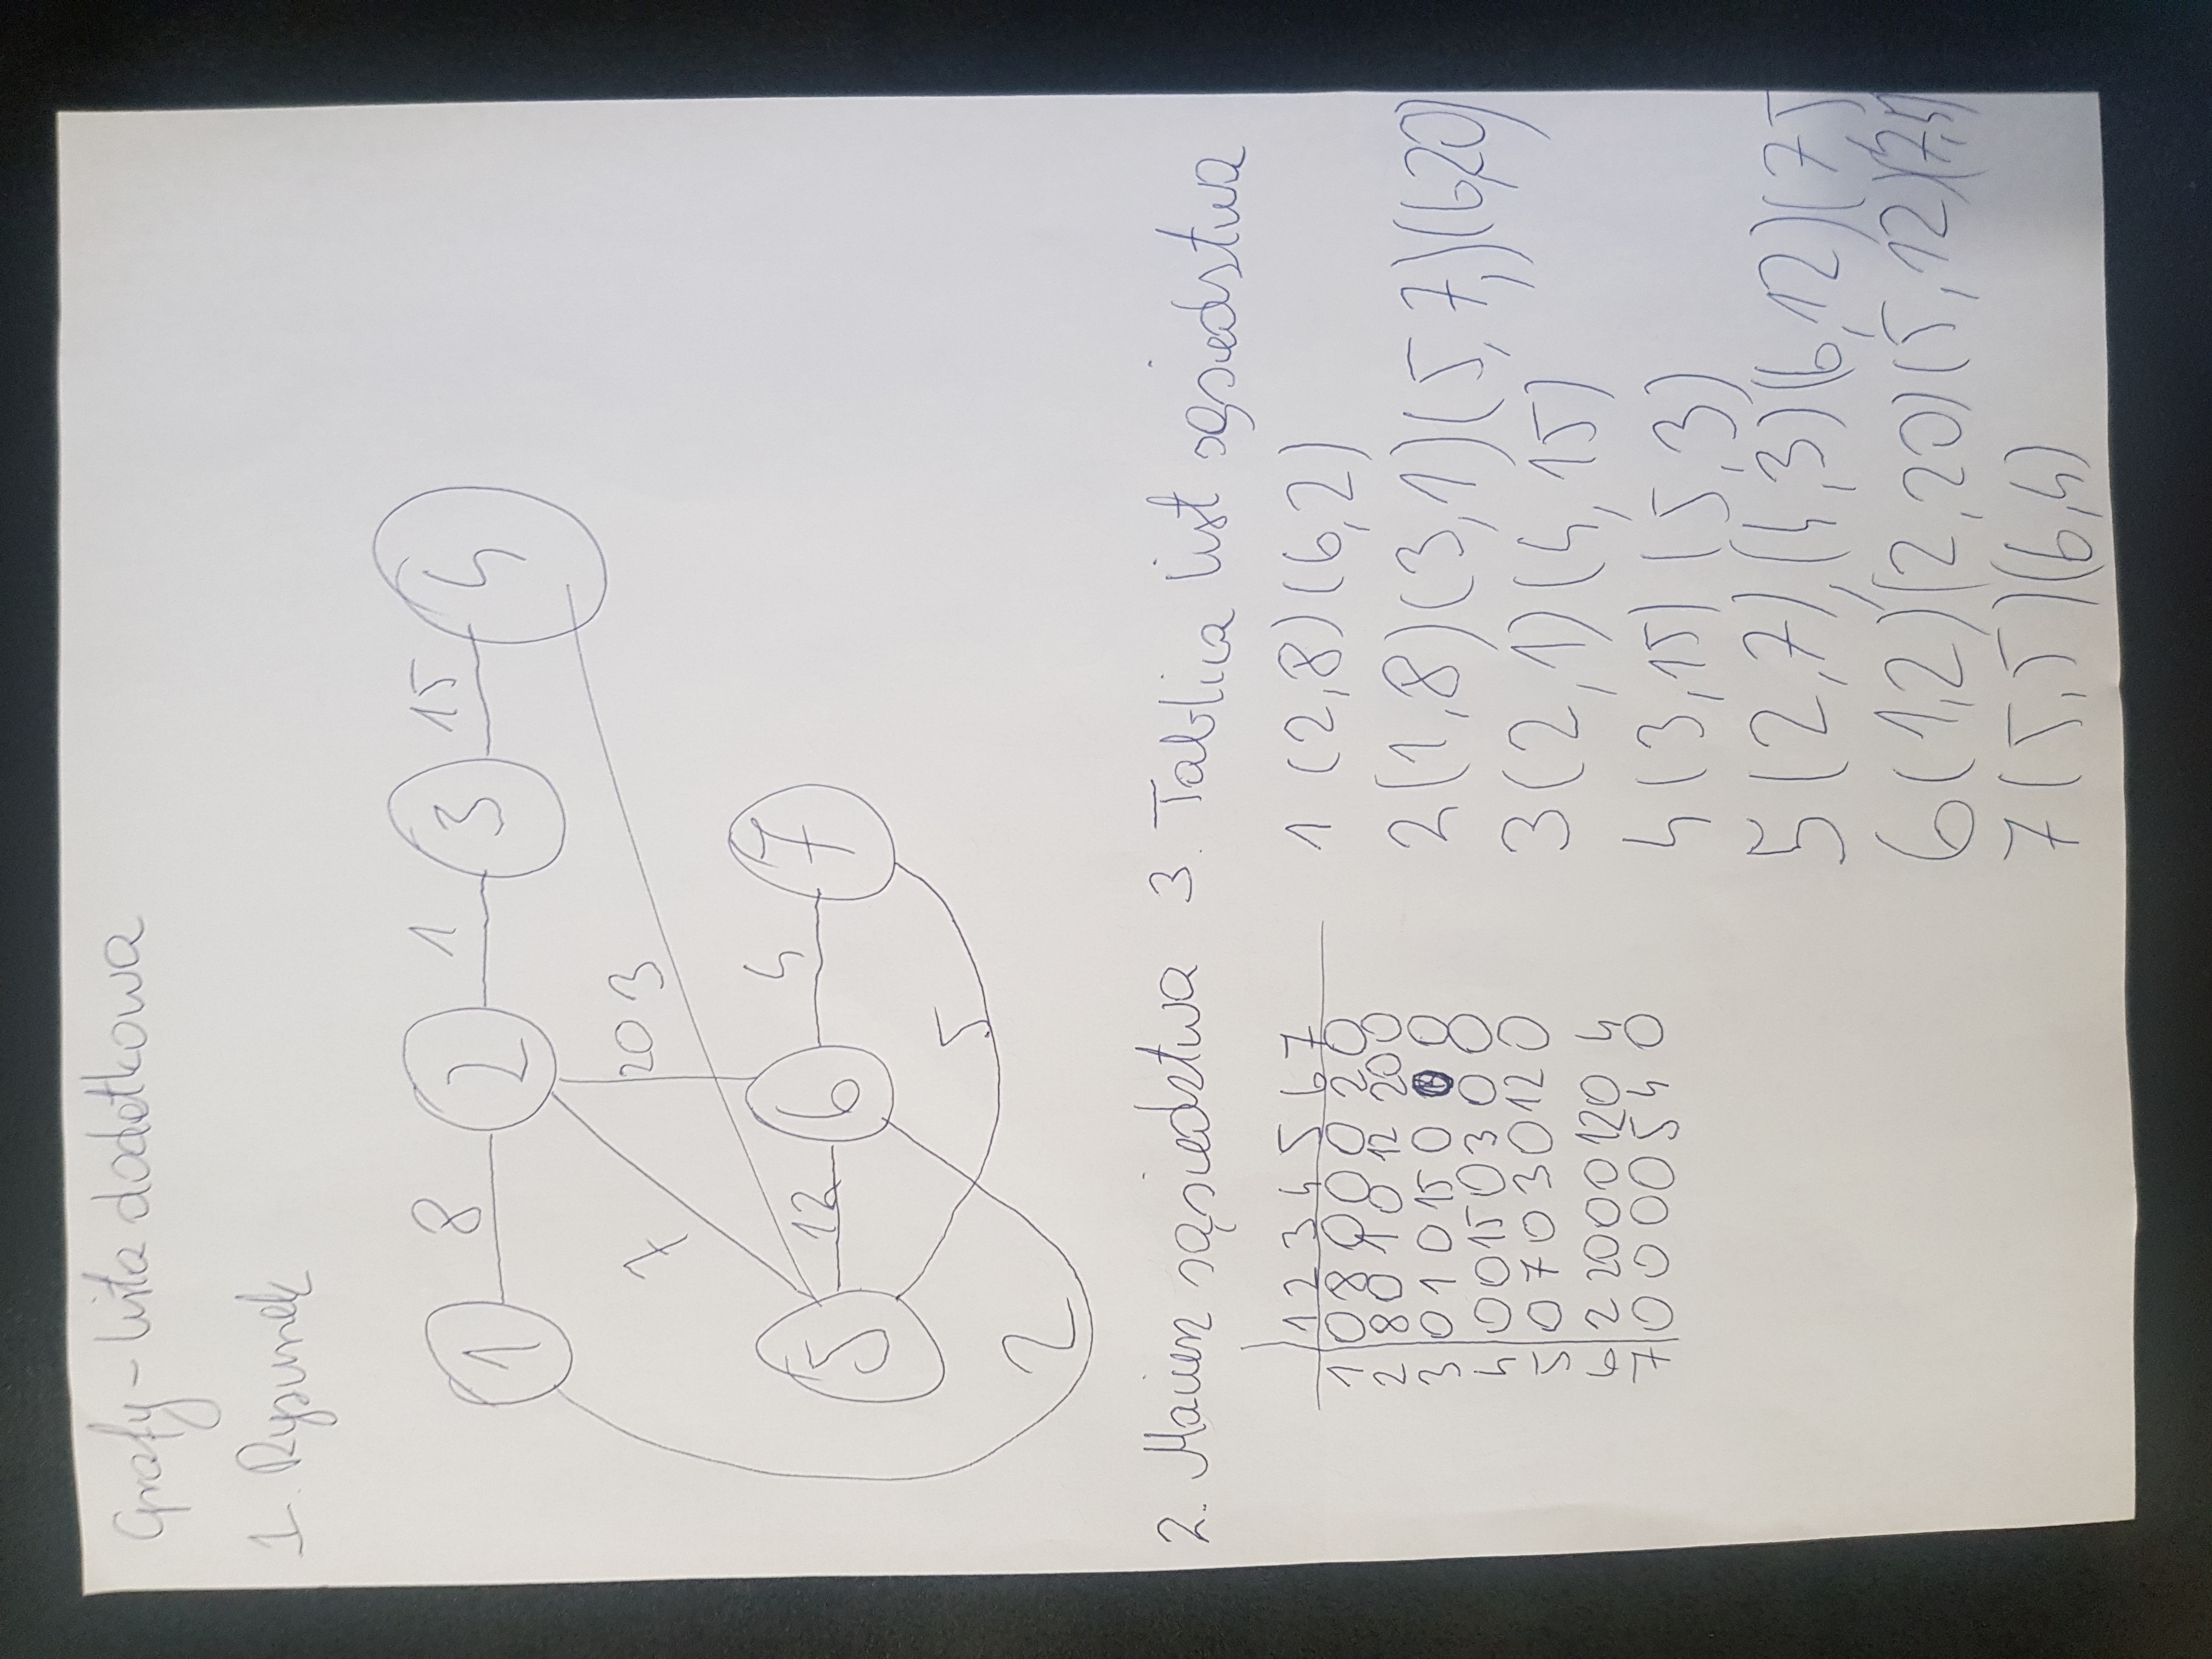 Grafy - lista dodatkowa
1. Rysunek
8 1 15
1 2 3 4
7 20 3
12 4
5 6 7
5
2
2. Macierz sąsiedztwa
1 2 3 4 5 6 7
1 0 8 0 0 0 2 0
2 8 0 1 0 12 20 0
3 0 1 0 15 0 0
4 0 0 15 0 3 0 0
5 0 7 0 3 0 12 0
6 2 20 0 0 12 0 4
7 0 0 0 0 5 4 0
3. Tablica list sąsiedztwa
1 (2,8) (6,2)
2 (1,8) (3,1) (5,7,) (6,20)
3 (2,1) (4,15)
4 (3,15) (5,3)
5 (2,7), (4,3) (6,12) (7,5
6 (1,2) (2,20) (5,12) (7,4)
7 (5,5) (6,4)